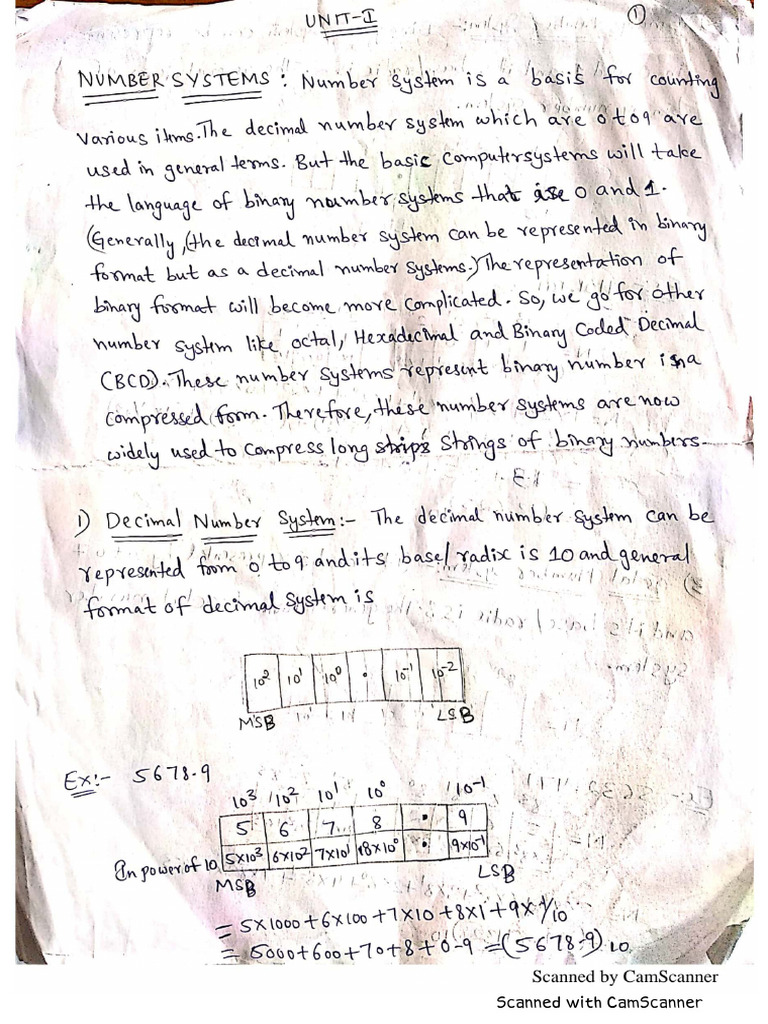 UNIT-I
1
NUMBER SYSTEMS: Number system is a basis for counting
various items. The decimal number system which are 0 to 9 are
used in general terms. But the basic computersystems will take
the language of binary number systems that is 0 and 1.
(Generally, (the decimal number system can be represented in binary
format but as a decimal number systems.) The representation of
binary format will become more complicated. So, we go for other
number system like octal, Hexadecimal and Binary Coded Decimal
(BCD). These number systems represent binary number in a
compressed form. Therefore, these number systems are now
widely used to compress long strips strings of binary numbers-
1) Decimal Number System:- The decimal number system can be
represented from 0 to 9 and its base/radix is 10 and general
format of decimal system is
10² 10¹ 10⁰ . 10⁻¹ 10⁻²
MSB LSB
Ex:- 5678.9
10³ 10² 10¹ 10⁰ 10⁻¹
5 6 7 8 . 9
In power of 10 5x10³ 6x10² 7x10¹ 8x10⁰ . 9x10⁻¹
MSB LSB
= 5x1000+6x100+7x10+8x1+9x1/10
= 5000+600+70+8+0.9=(5678.9)10
Scanned by CamScanner
Scanned with CamScanner